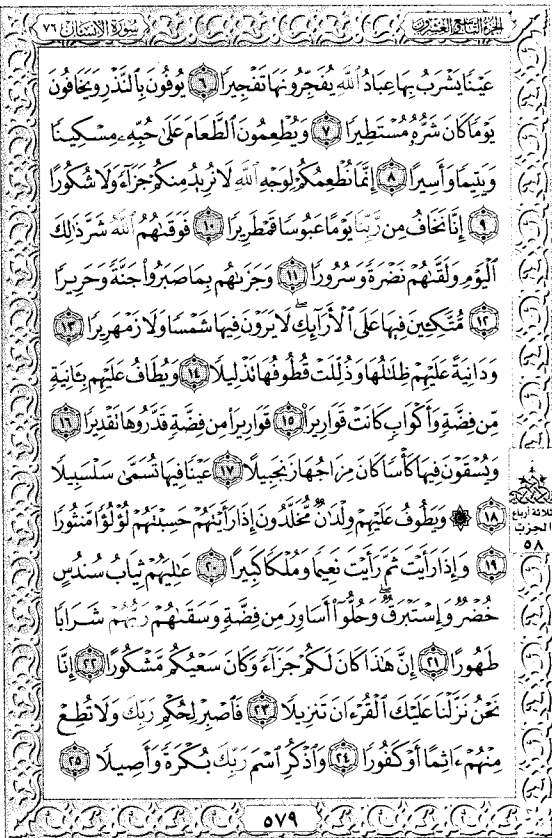 الجزء التاسع والعشرون سورة الإنسان ٧٦
عَيْنًا يَشْرَبُ بِهَا عِبَادُ ٱللَّهِ يُفَجِّرُونَهَا تَفْجِيرًا ٦ يُوفُونَ بِٱلنَّذْرِ وَيَخَافُونَ
يَوْمًا كَانَ شَرُّهُۥ مُسْتَطِيرًا ٧ وَيُطْعِمُونَ ٱلطَّعَامَ عَلَىٰ حُبِّهِۦ مِسْكِينًا
وَيَتِيمًا وَأَسِيرًا ٨ إِنَّمَا نُطْعِمُكُمْ لِوَجْهِ ٱللَّهِ لَا نُرِيدُ مِنكُمْ جَزَآءً وَلَا شُكُورًا
٩ إِنَّا نَخَافُ مِن رَّبِّنَا يَوْمًا عَبُوسًا قَمْطَرِيرًا ١٠ فَوَقَىٰهُمُ ٱللَّهُ شَرَّ ذَٰلِكَ
ٱلْيَوْمِ وَلَقَّىٰهُمْ نَضْرَةً وَسُرُورًا ١١ وَجَزَىٰهُم بِمَا صَبَرُوا۟ جَنَّةً وَحَرِيرًا
١٢ مُّتَّكِـِٔينَ فِيهَا عَلَى ٱلْأَرَآئِكِ ۖ لَا يَرَوْنَ فِيهَا شَمْسًا وَلَا زَمْهَرِيرًا ١٣
وَدَانِيَةً عَلَيْهِمْ ظِلَٰلُهَا وَذُلِّلَتْ قُطُوفُهَا تَذْلِيلًا ١٤ وَيُطَافُ عَلَيْهِم بِـَٔانِيَةٍ
مِّن فِضَّةٍ وَأَكْوَابٍ كَانَتْ قَوَارِيرَا۠ ١٥ قَوَارِيرَا۟ مِن فِضَّةٍ قَدَّرُوهَا تَقْدِيرًا ١٦
وَيُسْقَوْنَ فِيهَا كَأْسًا كَانَ مِزَاجُهَا زَنجَبِيلًا ١٧ عَيْنًا فِيهَا تُسَمَّىٰ سَلْسَبِيلًا
١٨ ۞ وَيَطُوفُ عَلَيْهِمْ وِلْدَٰنٌ مُّخَلَّدُونَ إِذَا رَأَيْتَهُمْ حَسِبْتَهُمْ لُؤْلُؤًا مَّنثُورًا
١٩ وَإِذَا رَأَيْتَ ثَمَّ رَأَيْتَ نَعِيمًا وَمُلْكًا كَبِيرًا ٢٠ عَٰلِيَهُمْ ثِيَابُ سُندُسٍ
خُضْرٌ وَإِسْتَبْرَقٌ ۖ وَحُلُّوٓا۟ أَسَاوِرَ مِن فِضَّةٍ وَسَقَىٰهُمْ رَبُّهُمْ شَرَابًا
طَهُورًا ٢١ إِنَّ هَٰذَا كَانَ لَكُمْ جَزَآءً وَكَانَ سَعْيُكُم مَّشْكُورًا ٢٢ إِنَّا
نَحْنُ نَزَّلْنَا عَلَيْكَ ٱلْقُرْءَانَ تَنزِيلًا ٢٣ فَٱصْبِرْ لِحُكْمِ رَبِّكَ وَلَا تُطِعْ
مِنْهُمْ ءَاثِمًا أَوْ كَفُورًا ٢٤ وَٱذْكُرِ ٱسْمَ رَبِّكَ بُكْرَةً وَأَصِيلًا ٢٥
ثلاثة أرباع
الحزب
٥٨
٥٧٩